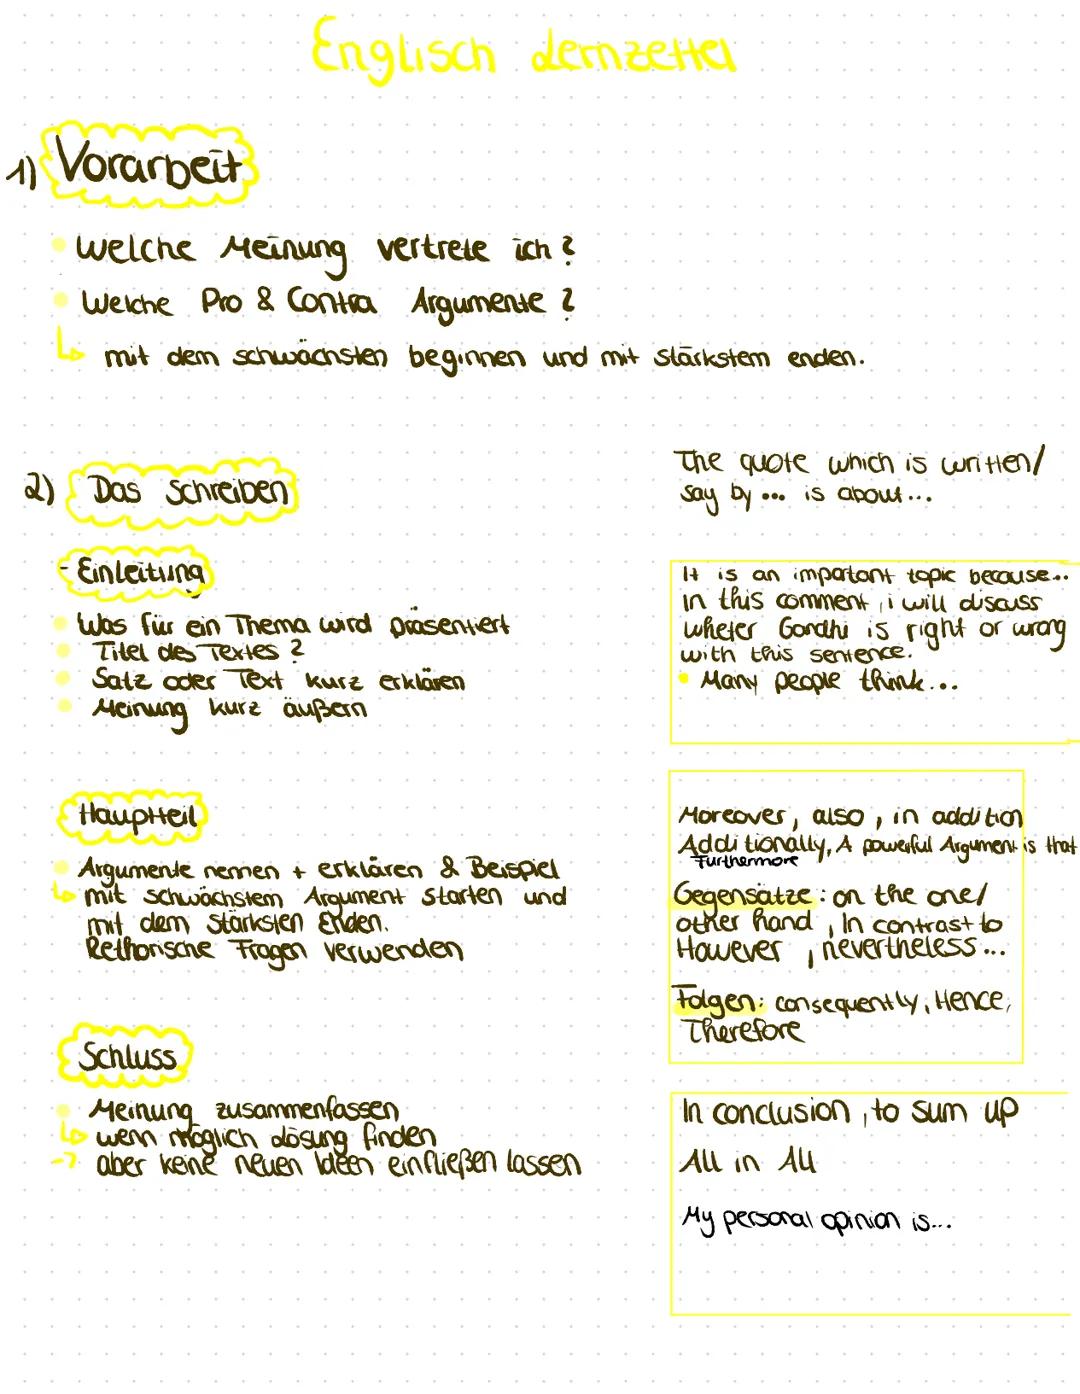 Englisch Lernzettel
1) Vorarbeit
• Welche Meinung vertrete ich ?
• Welche Pro & Contra Argumente ?
↳ mit dem schwächsten beginnen und mit stärkstem enden.
2) Das Schreiben
The quote which is written/
say by ... is about...
- Einleitung
• Was für ein Thema wird präsentiert
• Titel des Textes ?
• Satz oder Text kurz erklären
• Meinung kurz äußern
It is an important topic because...
In this comment, i will discuss
wheter Gandhi is right or wrong
with this sentence.
• Many people think...
Hauptteil
• Argumente nennen + erklären & Beispiel
↳ mit schwächstem Argument starten und
mit dem stärksten Enden.
Rethorische Fragen verwenden
Moreover, also, in addition
Additionally, A powerful Argument is that
Furthermore
Gegensätze: on the one/
other hand, In contrast to
However, nevertheless...
Folgen: consequently, Hence,
Therefore
Schluss
• Meinung zusammenfassen
↳ wenn möglich Lösung finden
-> aber keine neuen Ideen einfließen lassen
In conclusion, to sum up
All in All
My personal opinion is...